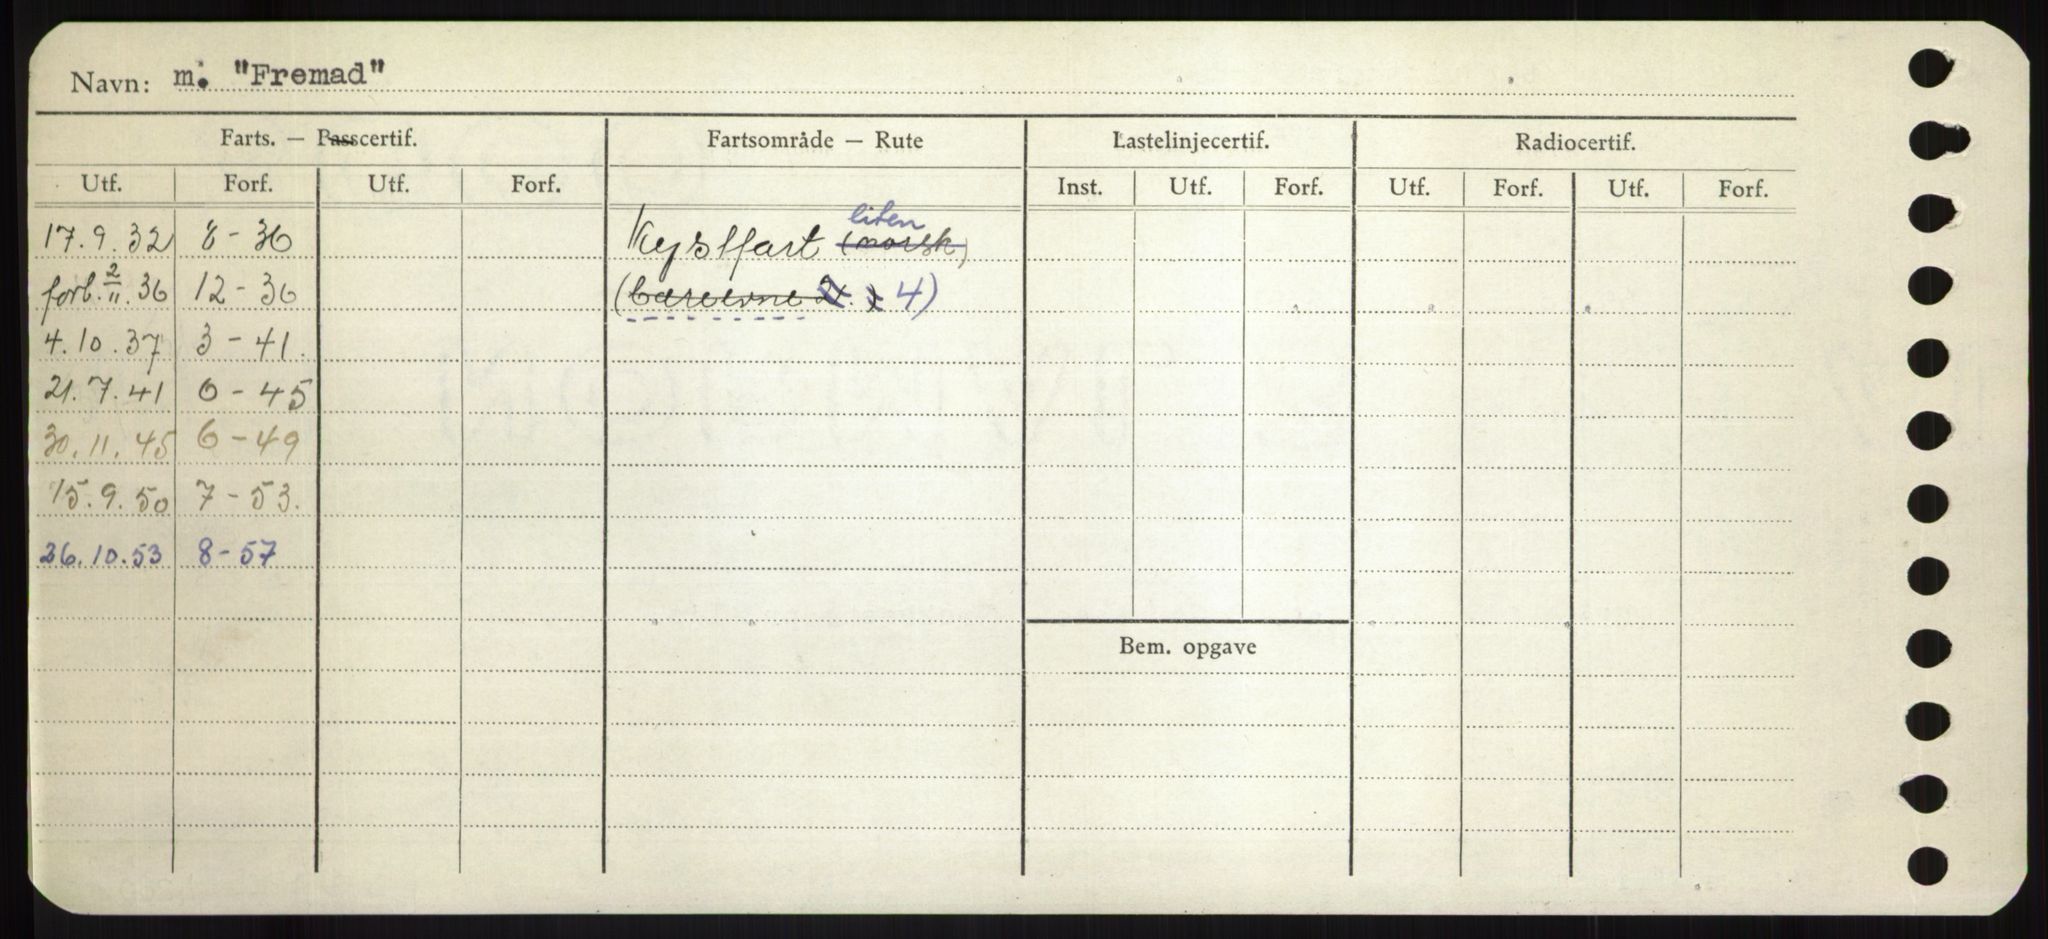 Navn: m. "Fremad"
Farts. — Passcertif. Fartsområde — Rute Lastelinjecertif. Radiocertif.
Utf. Forf. Utf. Forf. Inst. Utf. Forf. Utf. Forf. Utf. Forf.
liten
17.9.32 8-36 Kystfart (norsk)
forl. 2/11. 36 12-36 (bæreevne 2.) 4)
4.10.37 3-41.
21.7.41 6-45
30.11.45 6-49
15.9.50 7-53.
26.10.53 8-57
Bem. opgave